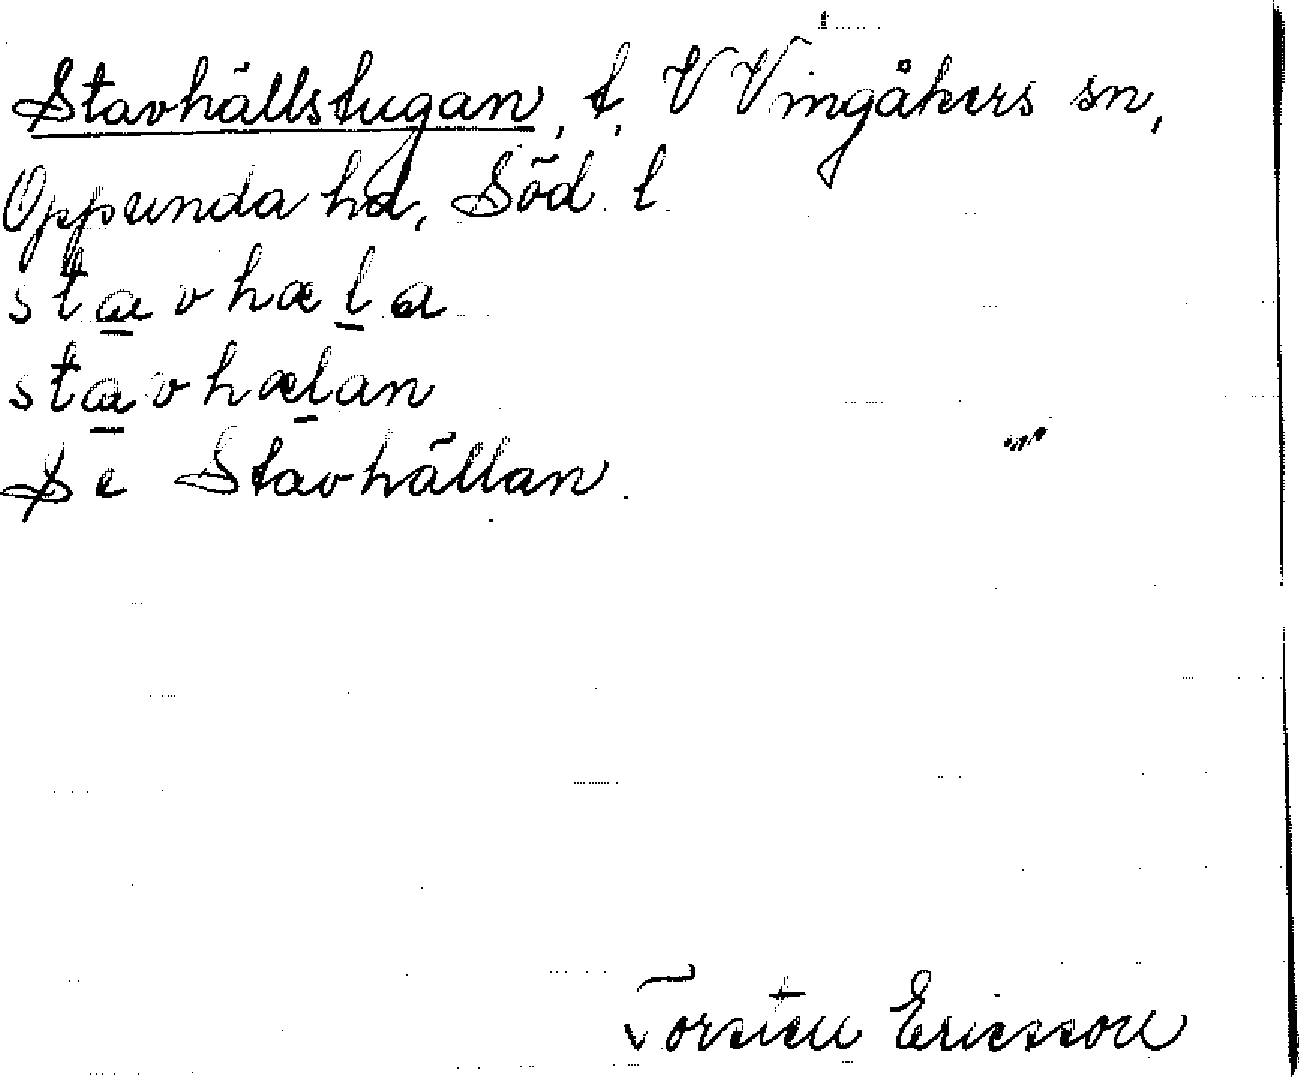 Stavhällstugan, t, V Vingåkers sn,
Oppunda hd, Söd. l
stavhæla
stavhælan
Se Stavhällan.
Torsten Ericsson